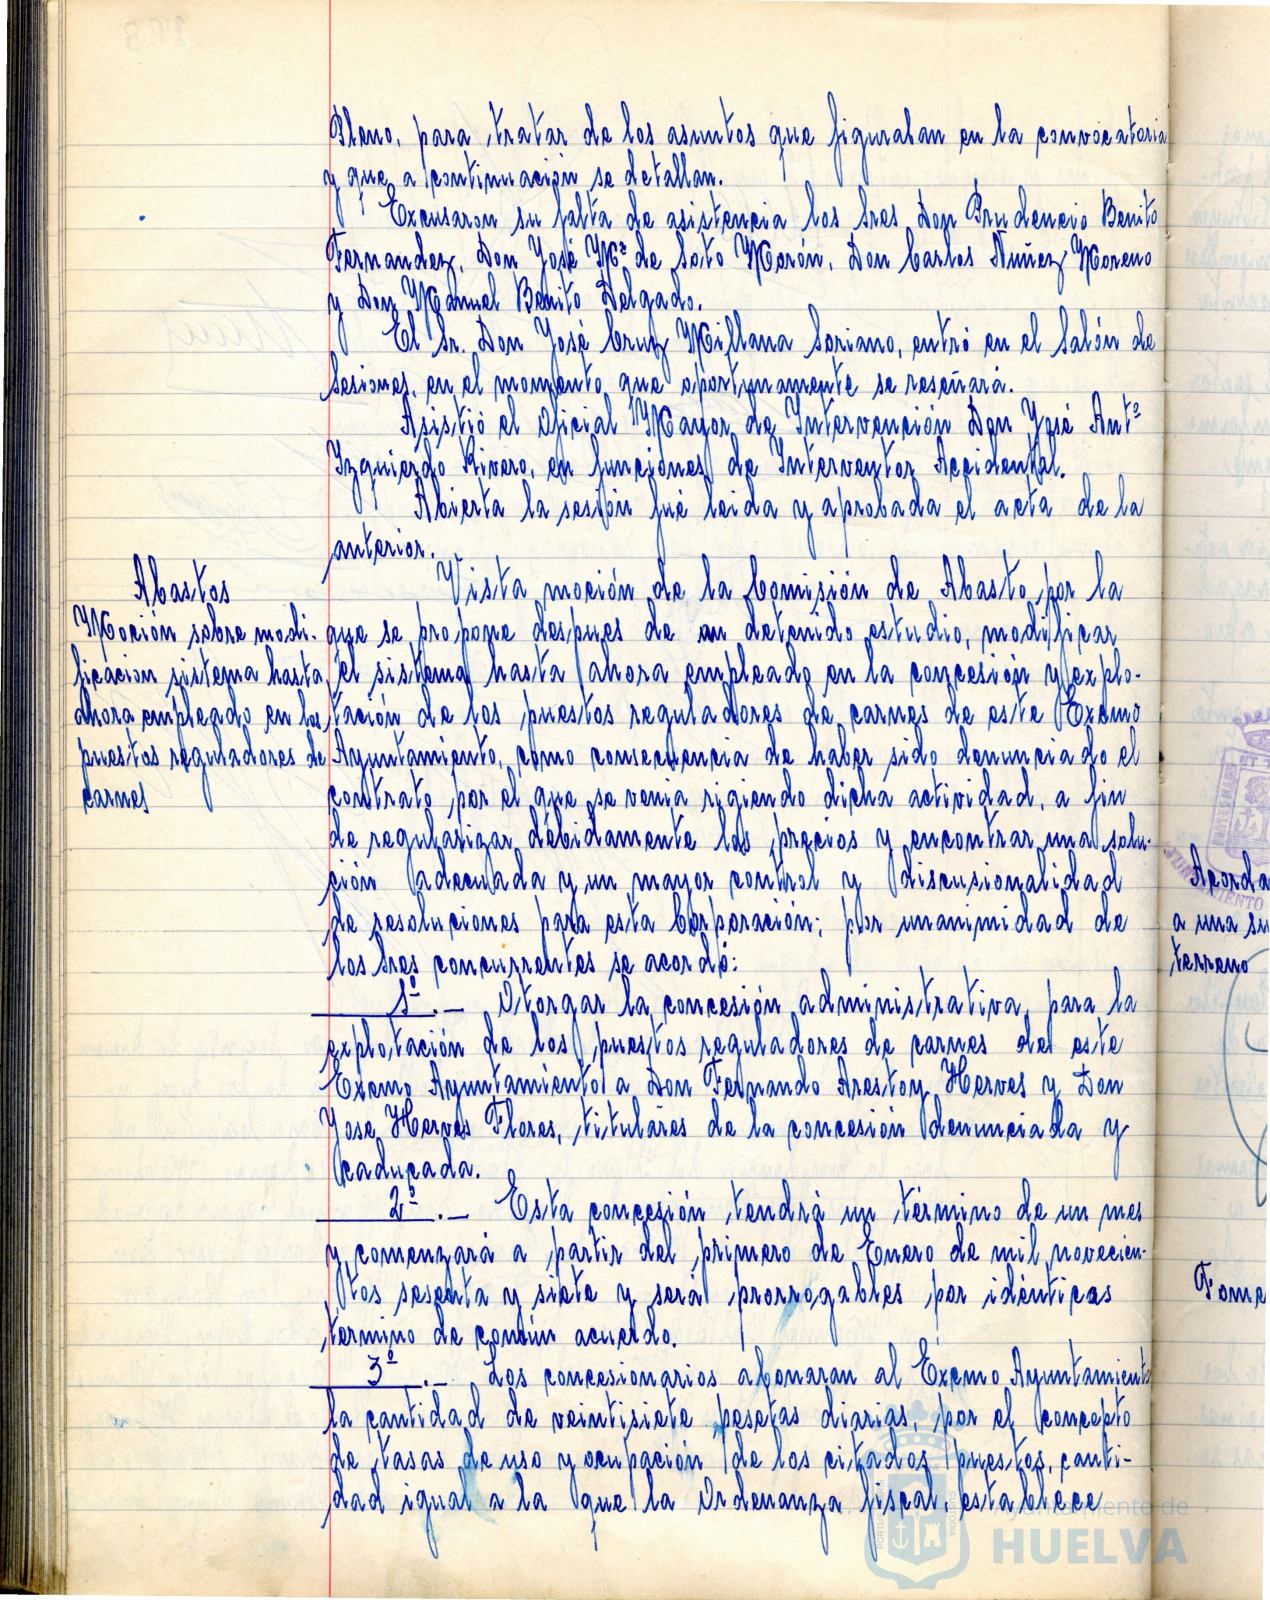 Pleno, para tratar de los asuntos que figuraban en la convocatoria
y que a continuación se detallan.
Excusaron su falta de asistencia los Sres Don Prudencio Benito
Fernandez, Don José Mª de Soto Morón, Don Carlos Núñez Moreno
y Don Manuel Benito Delgado.
El Sr. Don José Cruz Millana Soriano, entró en el Salón de
Sesiones, en el momento que oportunamente se reseñará.
Asistió el Oficial Mayor de Intervención Don José Antº
Izquierdo Rivero, en funciones de Interventor Accidental.
Abierta la sesión fué leida y aprobada el acta de la
anterior.
Abastos
Moción sobre modi-
ficacion sistema hasta
ahora empleado en los
puestos reguladores de
carnes
Vista moción de la Comisión de Abasto, por la
que se propone despues de un detenido estudio, modificar
el sistema hasta ahora empleado en la concesión y explo-
tación de los puestos reguladores de carnes de este Excmo
Ayuntamiento, como consecuencia de haber sido denunciado el
contrato por el que se venia rigiendo dicha actividad, a fin
de regularizar debidamente los precios y encontrar una solu-
ción adecuada y un mayor control y discusionalidad
de resoluciones para esta Corporación; por unanimidad de
los Sres concurrentes se acordó:
1º.- Otorgar la concesión administrativa, para la
explotación de los puestos reguladores de carnes del este
Excmo Ayuntamiento a Don Fernando Arestoy Herves y Don
Jose Herves Flores, titulares de la concesión denunciada y
caducada.
2º.- Esta concesión tendrá un término de un mes
y comenzará a partir del primero de Enero de mil novecien-
tos sesenta y siete y será prorrogables por idénticas
termino de común acuerdo.
3º.- Los concesionarios abonaran al Excmo Ayuntamiento
la cantidad de veintisiete pesetas diarias, por el concepto
de tasas de uso y ocupación de los citados puestos, canti-
dad igual a la que la Ordenanza fiscal, establece
Acorda
a una su
terreno
Fome
Ayuntamiento de
HUELVA